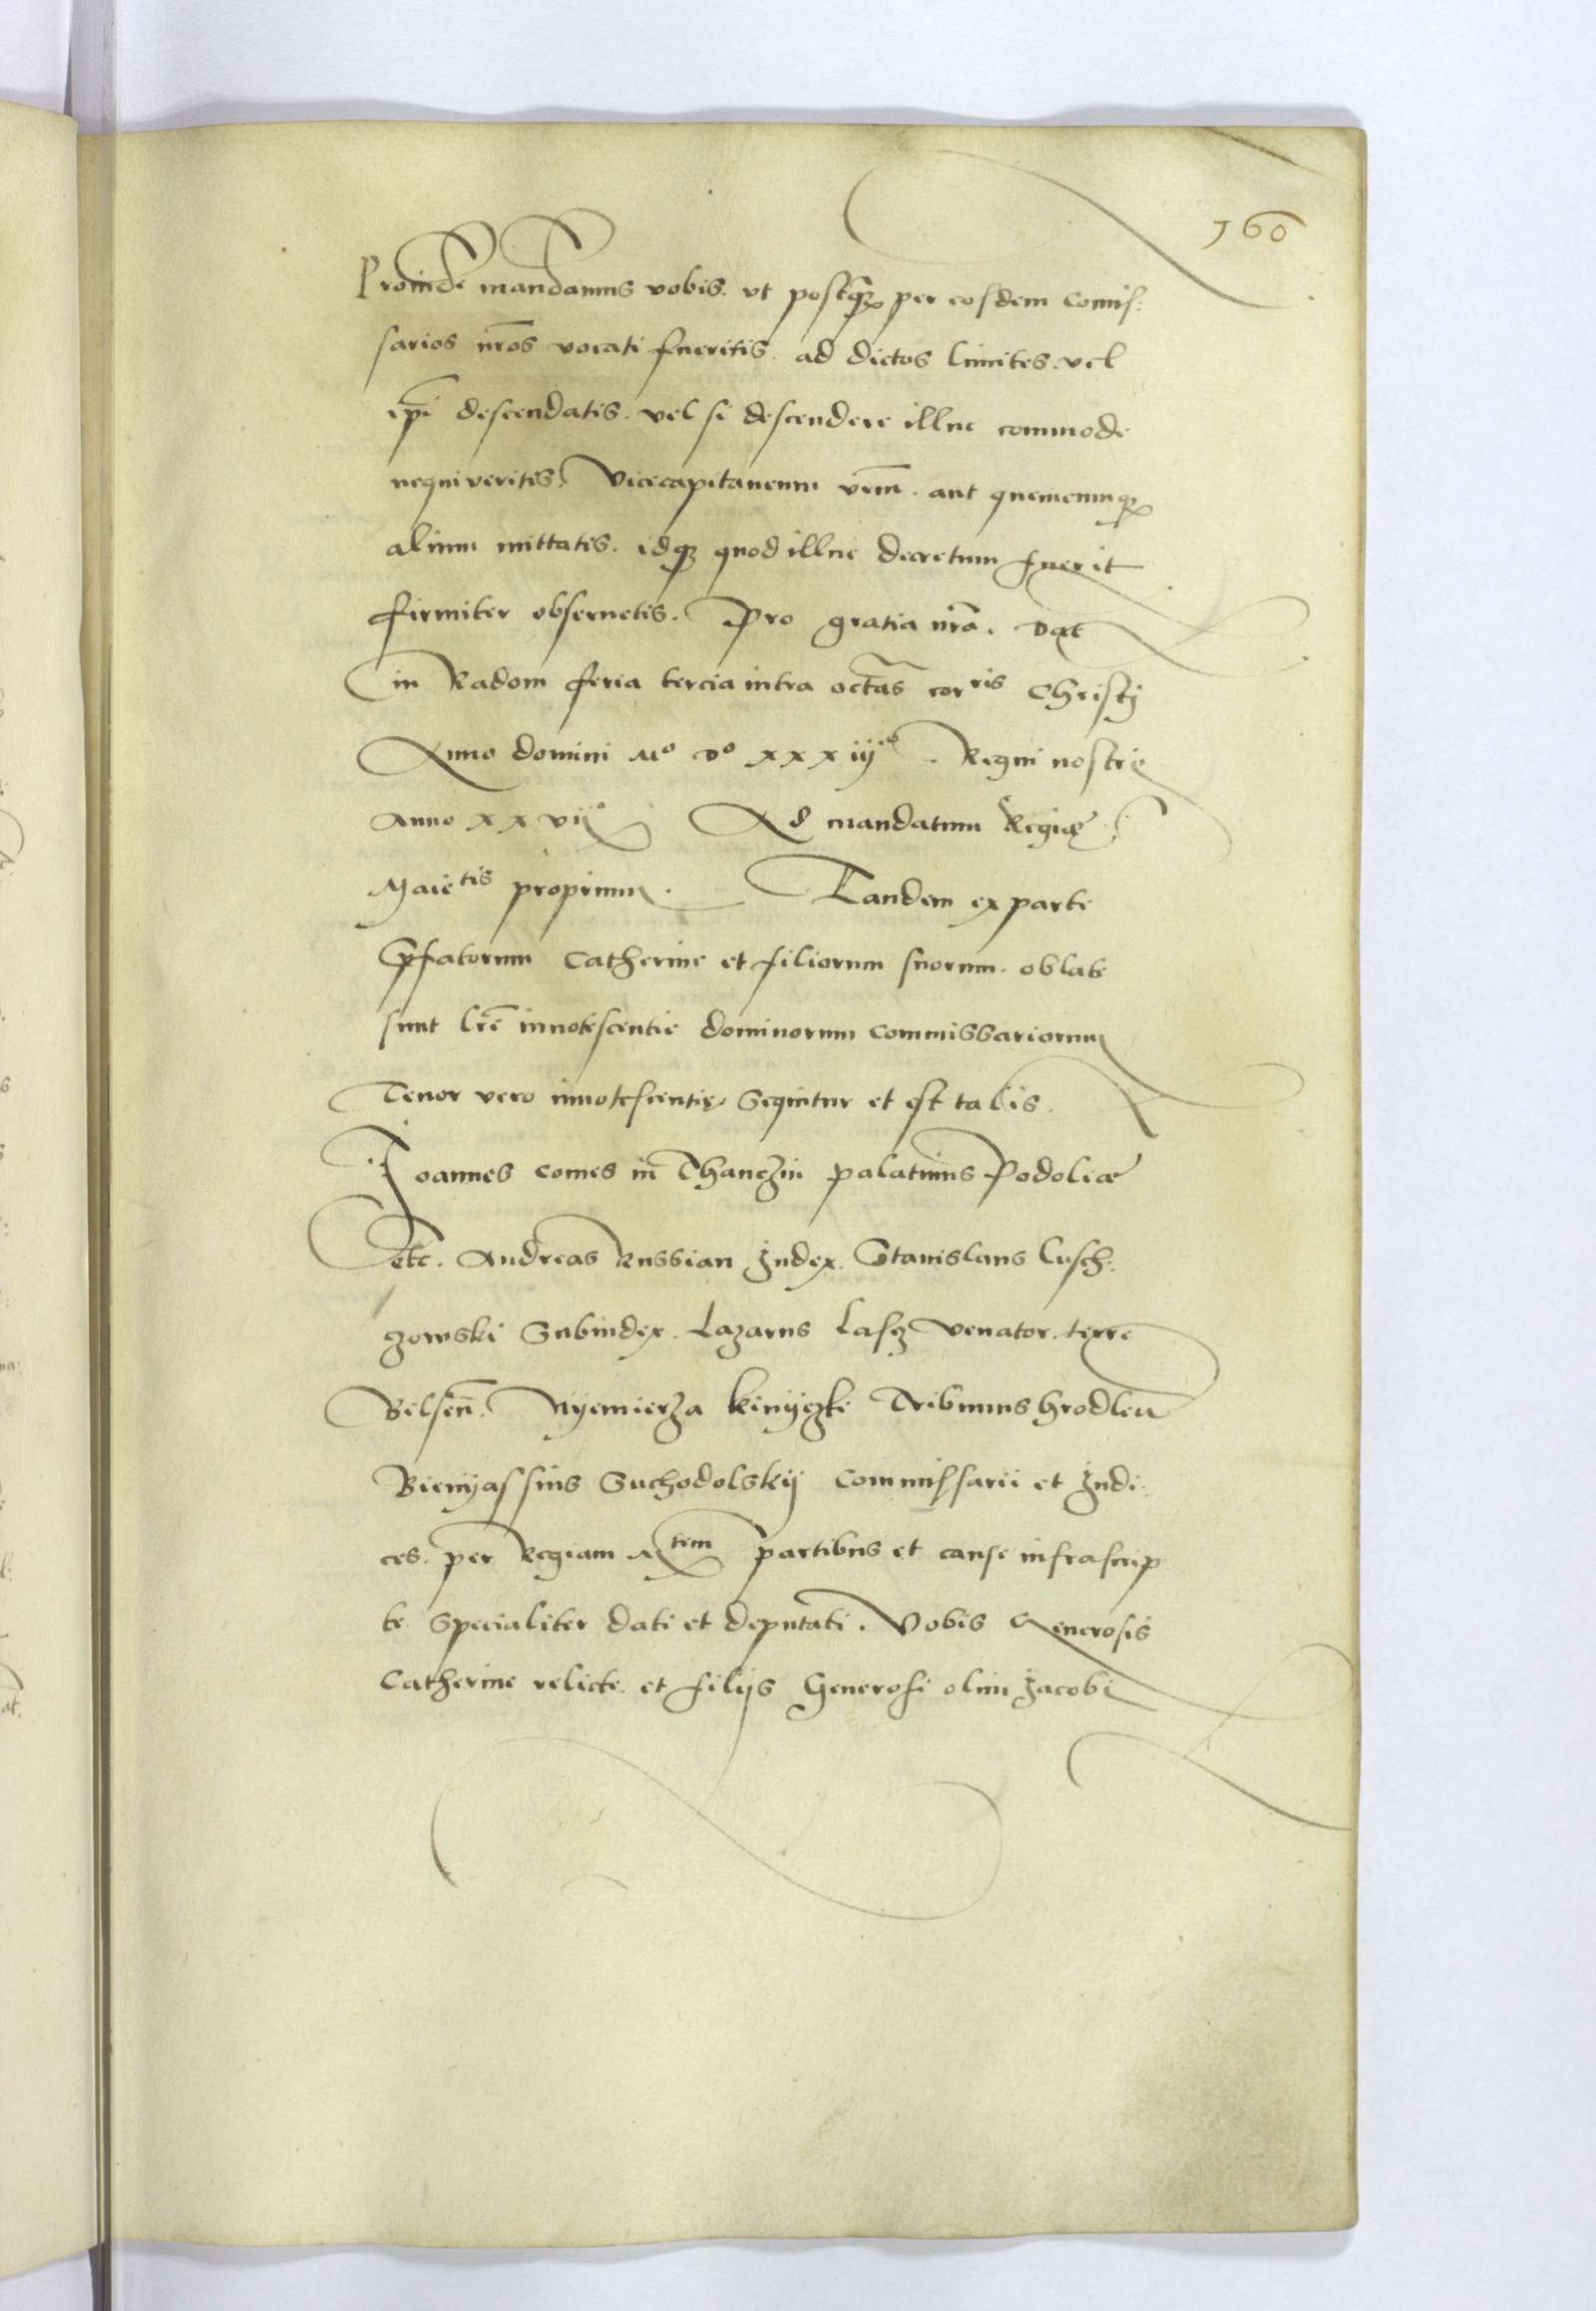 160
Proinde mandamus vobis. vt postq̃3 per eosdem Comis:
sarios nr̃os vocati fueritis. ad dictos limites. vel
ip̃i descendatis. vel si descendere illuc commode
nequiveritis. Vicecapitaneum vr̃m. aut quemcumq3
alium mittatis. idq3 quod illuc decretum fuerit
firmiter obseruetis. Pro gratia nr̃a. Dat
in Radom feria tercia intra octãs corris Christi
Anno domini Mo Do xxxiijo. Regni nostri
Anno xxvijo Ad mandatum Regiæ
Maietis proprium. Tandem ex parte
Pr̃fatorum Catherine et filiorum suorum. oblate
sunt lr̃e innotescentie dominorum commissariorum
Tenor vero innotescentię sequitur et est talis.
Ioannes comes in Thanczin palatinus Podoliæ
etc. Andreas Russian Iudex. Stanislaus Lusch:
zowski Subiudex. Lazarus Lasz Venator. terre
Belsen̄. Nyemierza Kinyczki Tribunus hrodlen̄
Bienyassius Suchodolskij Commissarii et Iudi:
ces. per Regiam Mtem partibus et cause infrascrip
te. Specialiter dati et deputati. Vobis Generosis
Catherine relicte. et filijs Generosi olim Iacobi